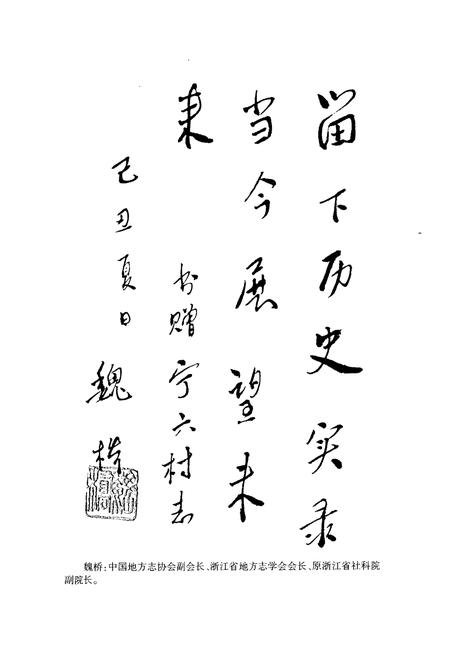 留下历史实录
当今展望未
来
书赠宁六村志
己丑夏日
魏桥
魏桥:中国地方志协会副会长、浙江省地方志学会会长、原浙江省社科院
副院长。